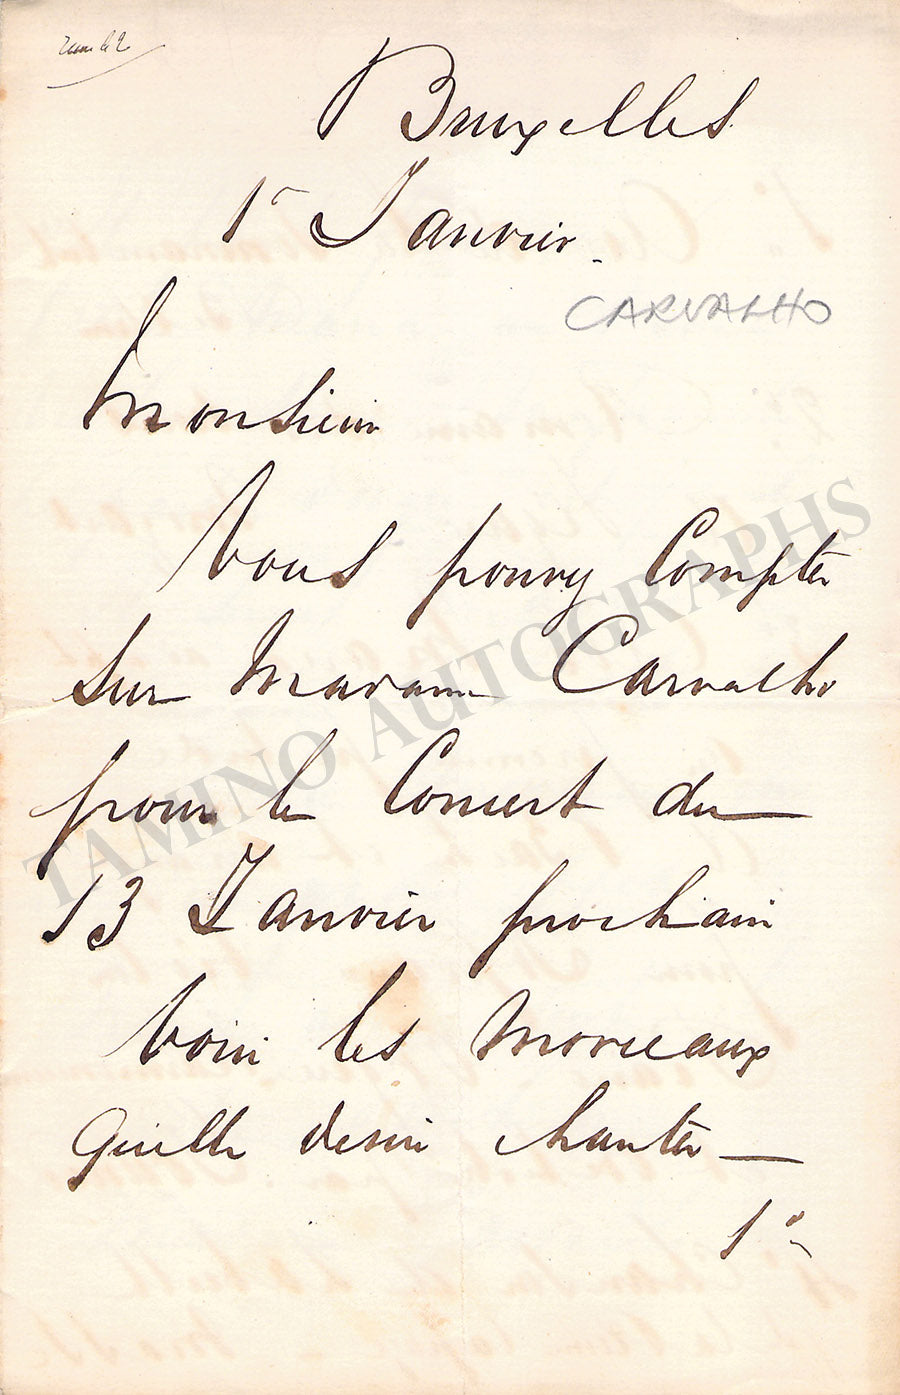 Bruxelles
1r Janvier.
CARVALHO
Monsieur
Vous pouvez Compter
sur Madame Carvalho
pour le Concert du
13 Janvier prochain
Voici les Morceaux
qu'elle désire chanter —
1o
TAMINO AUTOGRAPHS